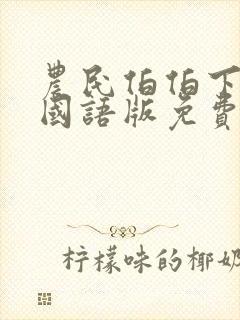 農民伯伯下
國語版免費
柠檬味的椰奶